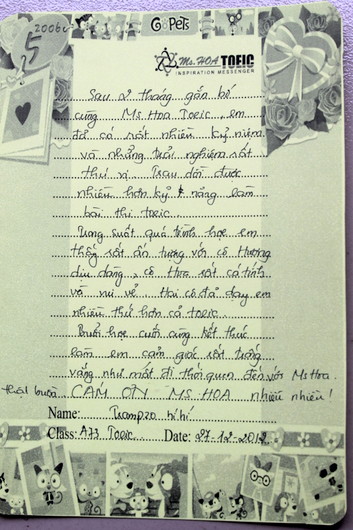 2006
5
GoPets
Ms.HOA TOEIC
INSPIRATION MESSENGER
Sau 2 tháng gắn bó
cùng Ms Hoa Toeic, em
đã có rất nhiều kỷ niệm
và những trải nghiệm rất
thú vị. Trau dồi được
nhiều hơn kỹ năng làm
bài thi toeic.
Trong suốt quá trình học em
thấy rất ấn tượng với cô Hương
dịu dàng, cô Hoa rất cá tính
và vui vẻ. Hai cô đã dạy em
nhiều thứ hơn cả toeic.
Buổi học cuối cùng kết thúc
làm em cảm giác rất trống
vắng như mất đi thói quen đến với Ms Hoa.
thật buồn CẢM ƠN MS HOA nhiều nhiều!
Name: hihi
Class: A73 Toeic Date: 27-12-2012